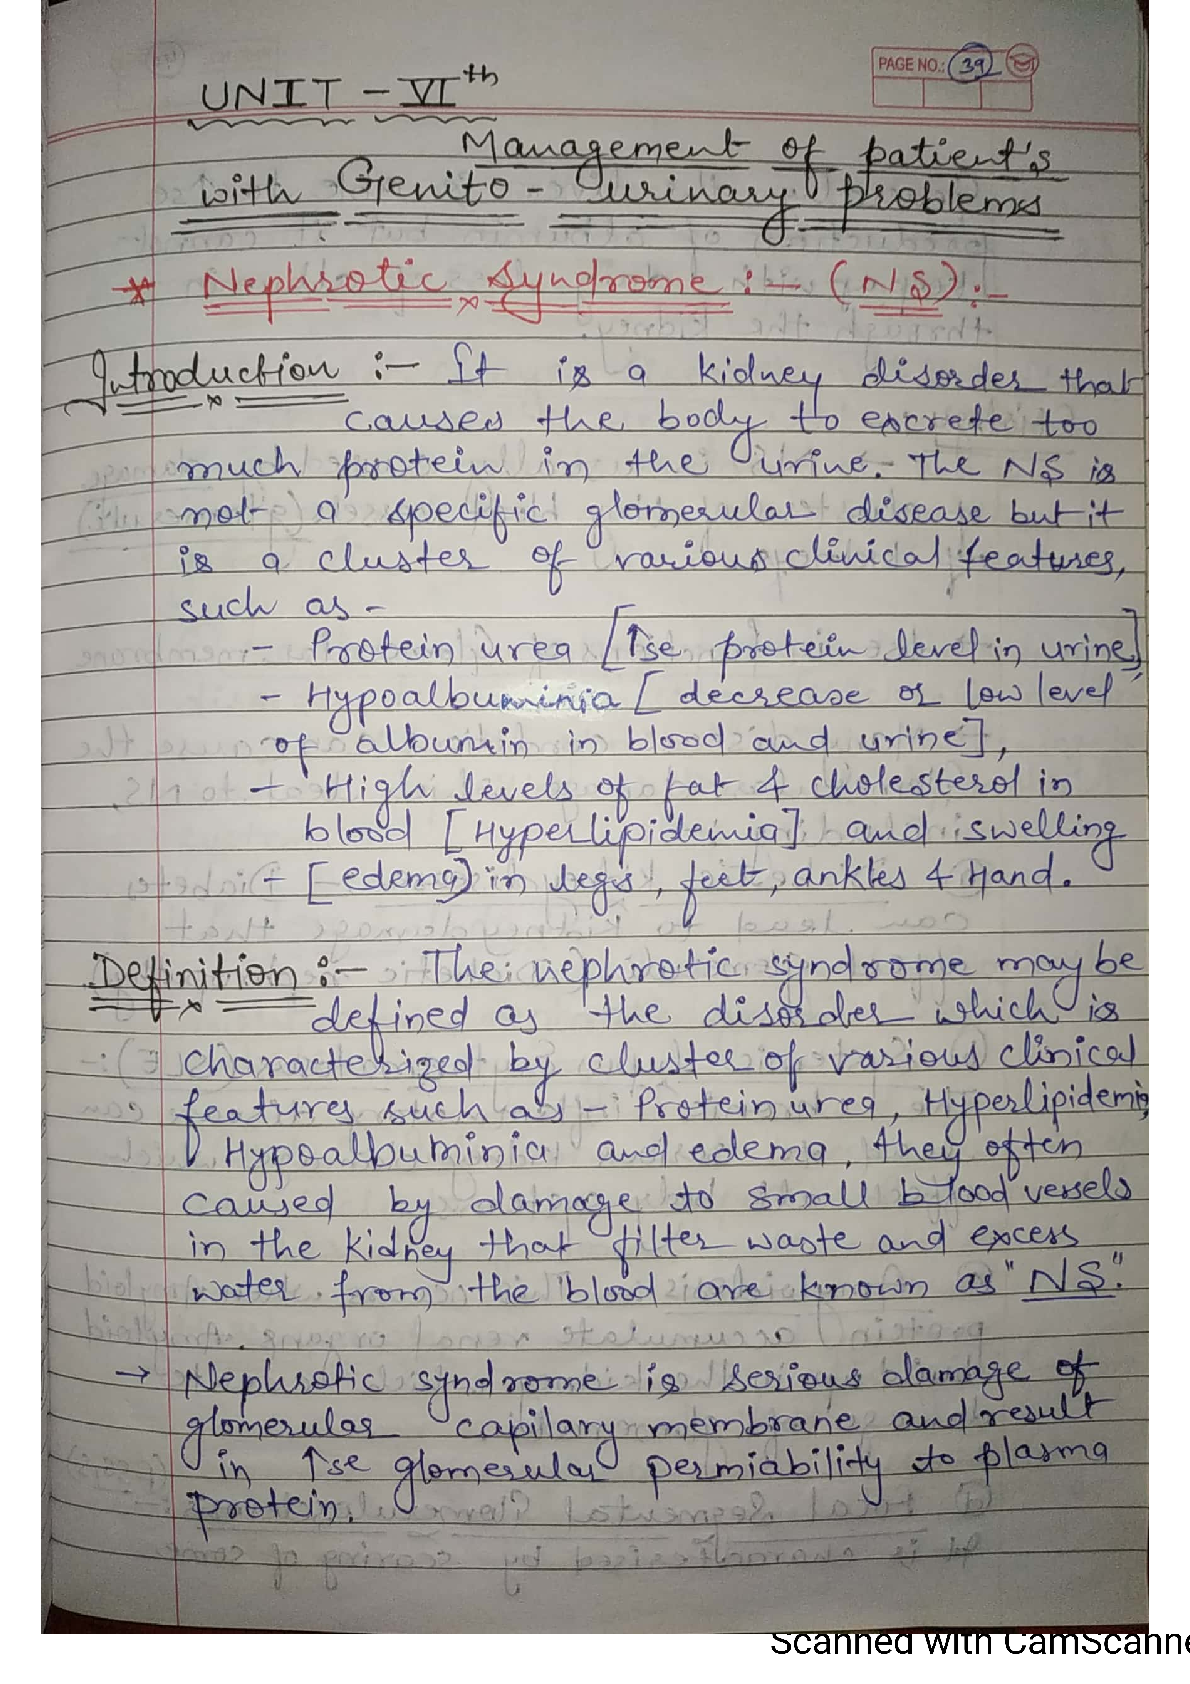 PAGE NO.: 39
UNIT - VIth
Management of patient's
with Genito - urinary problems
* Nephrotic Syndrome :- (NS) :-
Introduction :- It is a kidney disorder that
causes the body to excrete too
much protein in the urine. The NS is
not a specific glomerular disease but it
is a cluster of various clinical features,
such as -
- Protein urea [↑se protein level in urine],
- Hypoalbuminia [decrease or low level
of albumin in blood and urine],
- High levels of fat & cholesterol in
blood [Hyperlipidemia] and swelling
- [edema) in legs, feet, ankles & Hand.
Definition :- The nephrotic syndrome may be
defined as the disorder which is
characterized by cluster of various clinical
features such as - Protein urea, Hyperlipidemia,
Hypoalbuminia and edema, they often
caused by damage to small blood vessels
in the kidney that filter waste and excess
water from the blood are known as "NS".
→ Nephrotic syndrome is serious damage of
glomerular capilary membrane and result
in ↑se glomerular permiability to plasma
protein.
Scanned with CamScanne